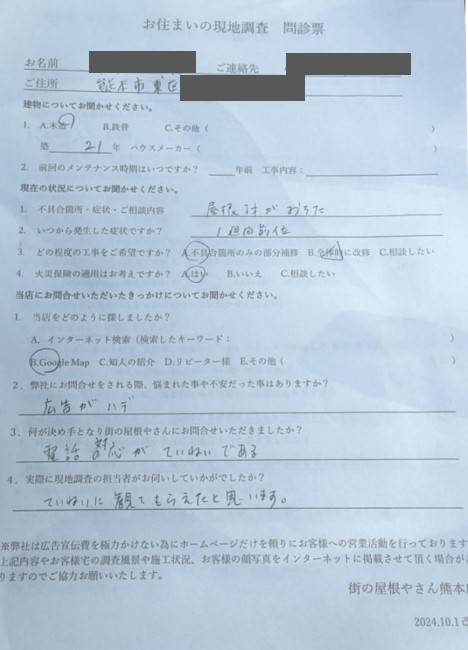 お住まいの現地調査　問診票
お名前　ご連絡先
ご住所　熊本市東区
建物についてお聞かせください。
1. A.木造　B.鉄骨　C.その他（　）
築 21 年　ハウスメーカー（　）
2. 前回のメンテナンス時期はいつですか？　年前　工事内容：
現在の状況についてお聞かせください。
1. 不具合箇所・症状・ご相談内容　屋根材がおちた
2. いつから発生した症状ですか？　1週間前位
3. どの程度の工事をご希望ですか？ A.不具合箇所のみの部分補修 B.全体的に改修 C.相談したい
4. 火災保険の適用はお考えですか？ A.はい　B.いいえ　C.相談したい
当店にお問合せいただいたきっかけについてお聞かせください。
1. 当店をどのように探しましたか？
A. インターネット検索（検索したキーワード：
B.Google Map　C.知人の紹介　D.リピーター様　E.その他（
2. 弊社にお問合せをされる際、悩まれた事や不安だった事はありますか？
広告がハデ
3. 何が決め手となり街の屋根やさんにお問合せいただきましたか？
電話対応がていねいである
4. 実際に現地調査の担当者がお伺いしていかがでしたか？
ていねいに観てもらえたと思います。
※弊社は広告宣伝費を極力かけない為にホームページだけを頼りにお客様への営業活動を行っております
上記内容やお客様宅の調査風景や施工状況、お客様の顔写真をインターネットに掲載させて頂く場合があ
りますのでご協力お願いいたします。
街の屋根やさん熊本
2024.10.1